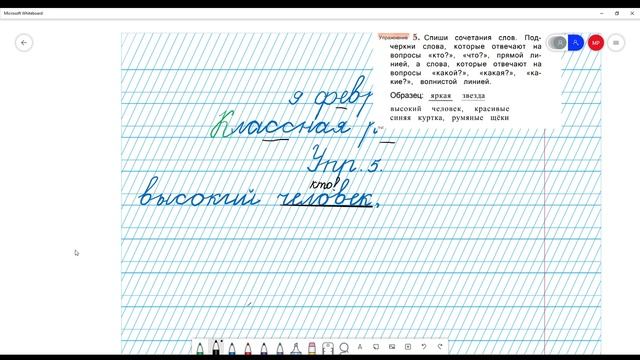 Microsoft Whiteboard
MP
Упражнение 5. Спиши сочетания слов. Под-
черкни слова, которые отвечают на
вопросы «кто?», «что?», прямой ли-
нией, а слова, которые отвечают на
вопросы «какой?», «какая?», «ка-
кие?», волнистой линией.
Образец: яркая звезда
высокий человек, красивые
синяя куртка, румяные щёки
9 февр
Классная р
Упр. 5.
кто?
высокий человек,